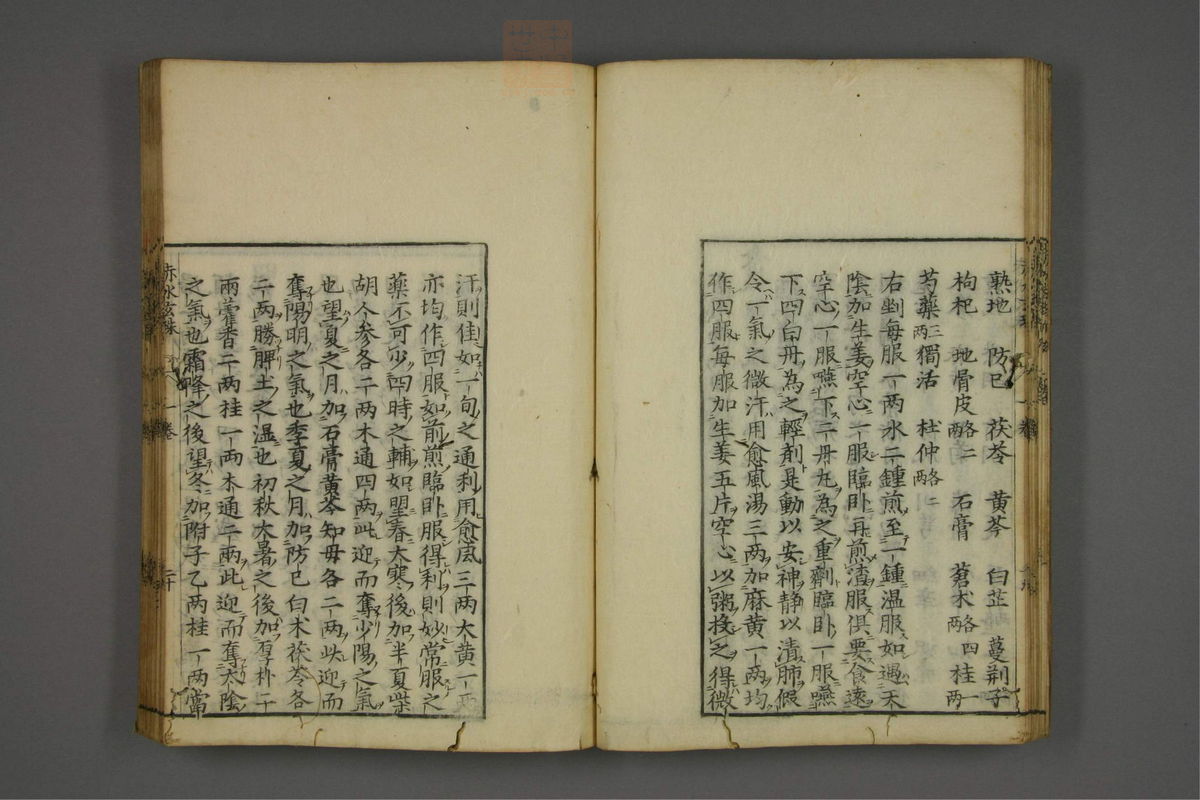 熟地　防已　茯苓　黄芩　白芷　蔓荊子
枸杞　地骨皮各二兩　石膏　蒼朮各四兩　桂一兩
芍藥三兩　獨活　杜仲各二兩
右剉每服一兩水二鍾煎至一鍾温服如遇天
陰加生姜空心一服臨卧再煎渣服俱要食遠
空心一服嚥下二丹丸為之重劑臨卧一服嚥
下四白丹為之輕剤是動以安神静以清肺假
令一氣之微汗用愈風湯三兩加麻黄一兩均
作四服每服加生姜五片空心以粥投之得微
汗則佳如一旬之通利用愈風三兩大黄一兩
亦均作四服如前煎臨卧服得利則妙常服之
藥不可少四時之輔如望春大寒後加半夏柴
胡人参各二兩木通四兩此迎而奪少陽之氣
也望夏之月加石膏黄芩知母各二兩此迎而
奪陽明之氣也季夏之月加防已白朮茯苓各
二两勝脾土之湿也初秋大暑之後加厚朴二
兩藿香二两桂一兩木通二兩此迎而奪太陰
之氣也霜降之後望冬加附子乙两桂一两當
赤水玄珠
一卷
二十